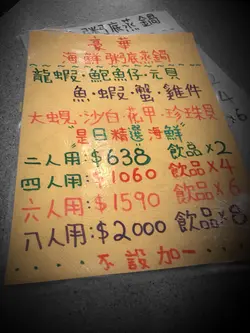 粥底蒸鍋
豪華
海鮮粥底蒸鍋
龍蝦·鮑魚仔·元貝
魚·蝦·蟹·雞件
大蜆·沙白·花甲·珍珠貝
是日精選海鮮
二人用:$638 飲品×2
四人用:$1060 飲品×4
六人用:$1590 飲品×6
八人用:$2000 飲品×8
不設加一